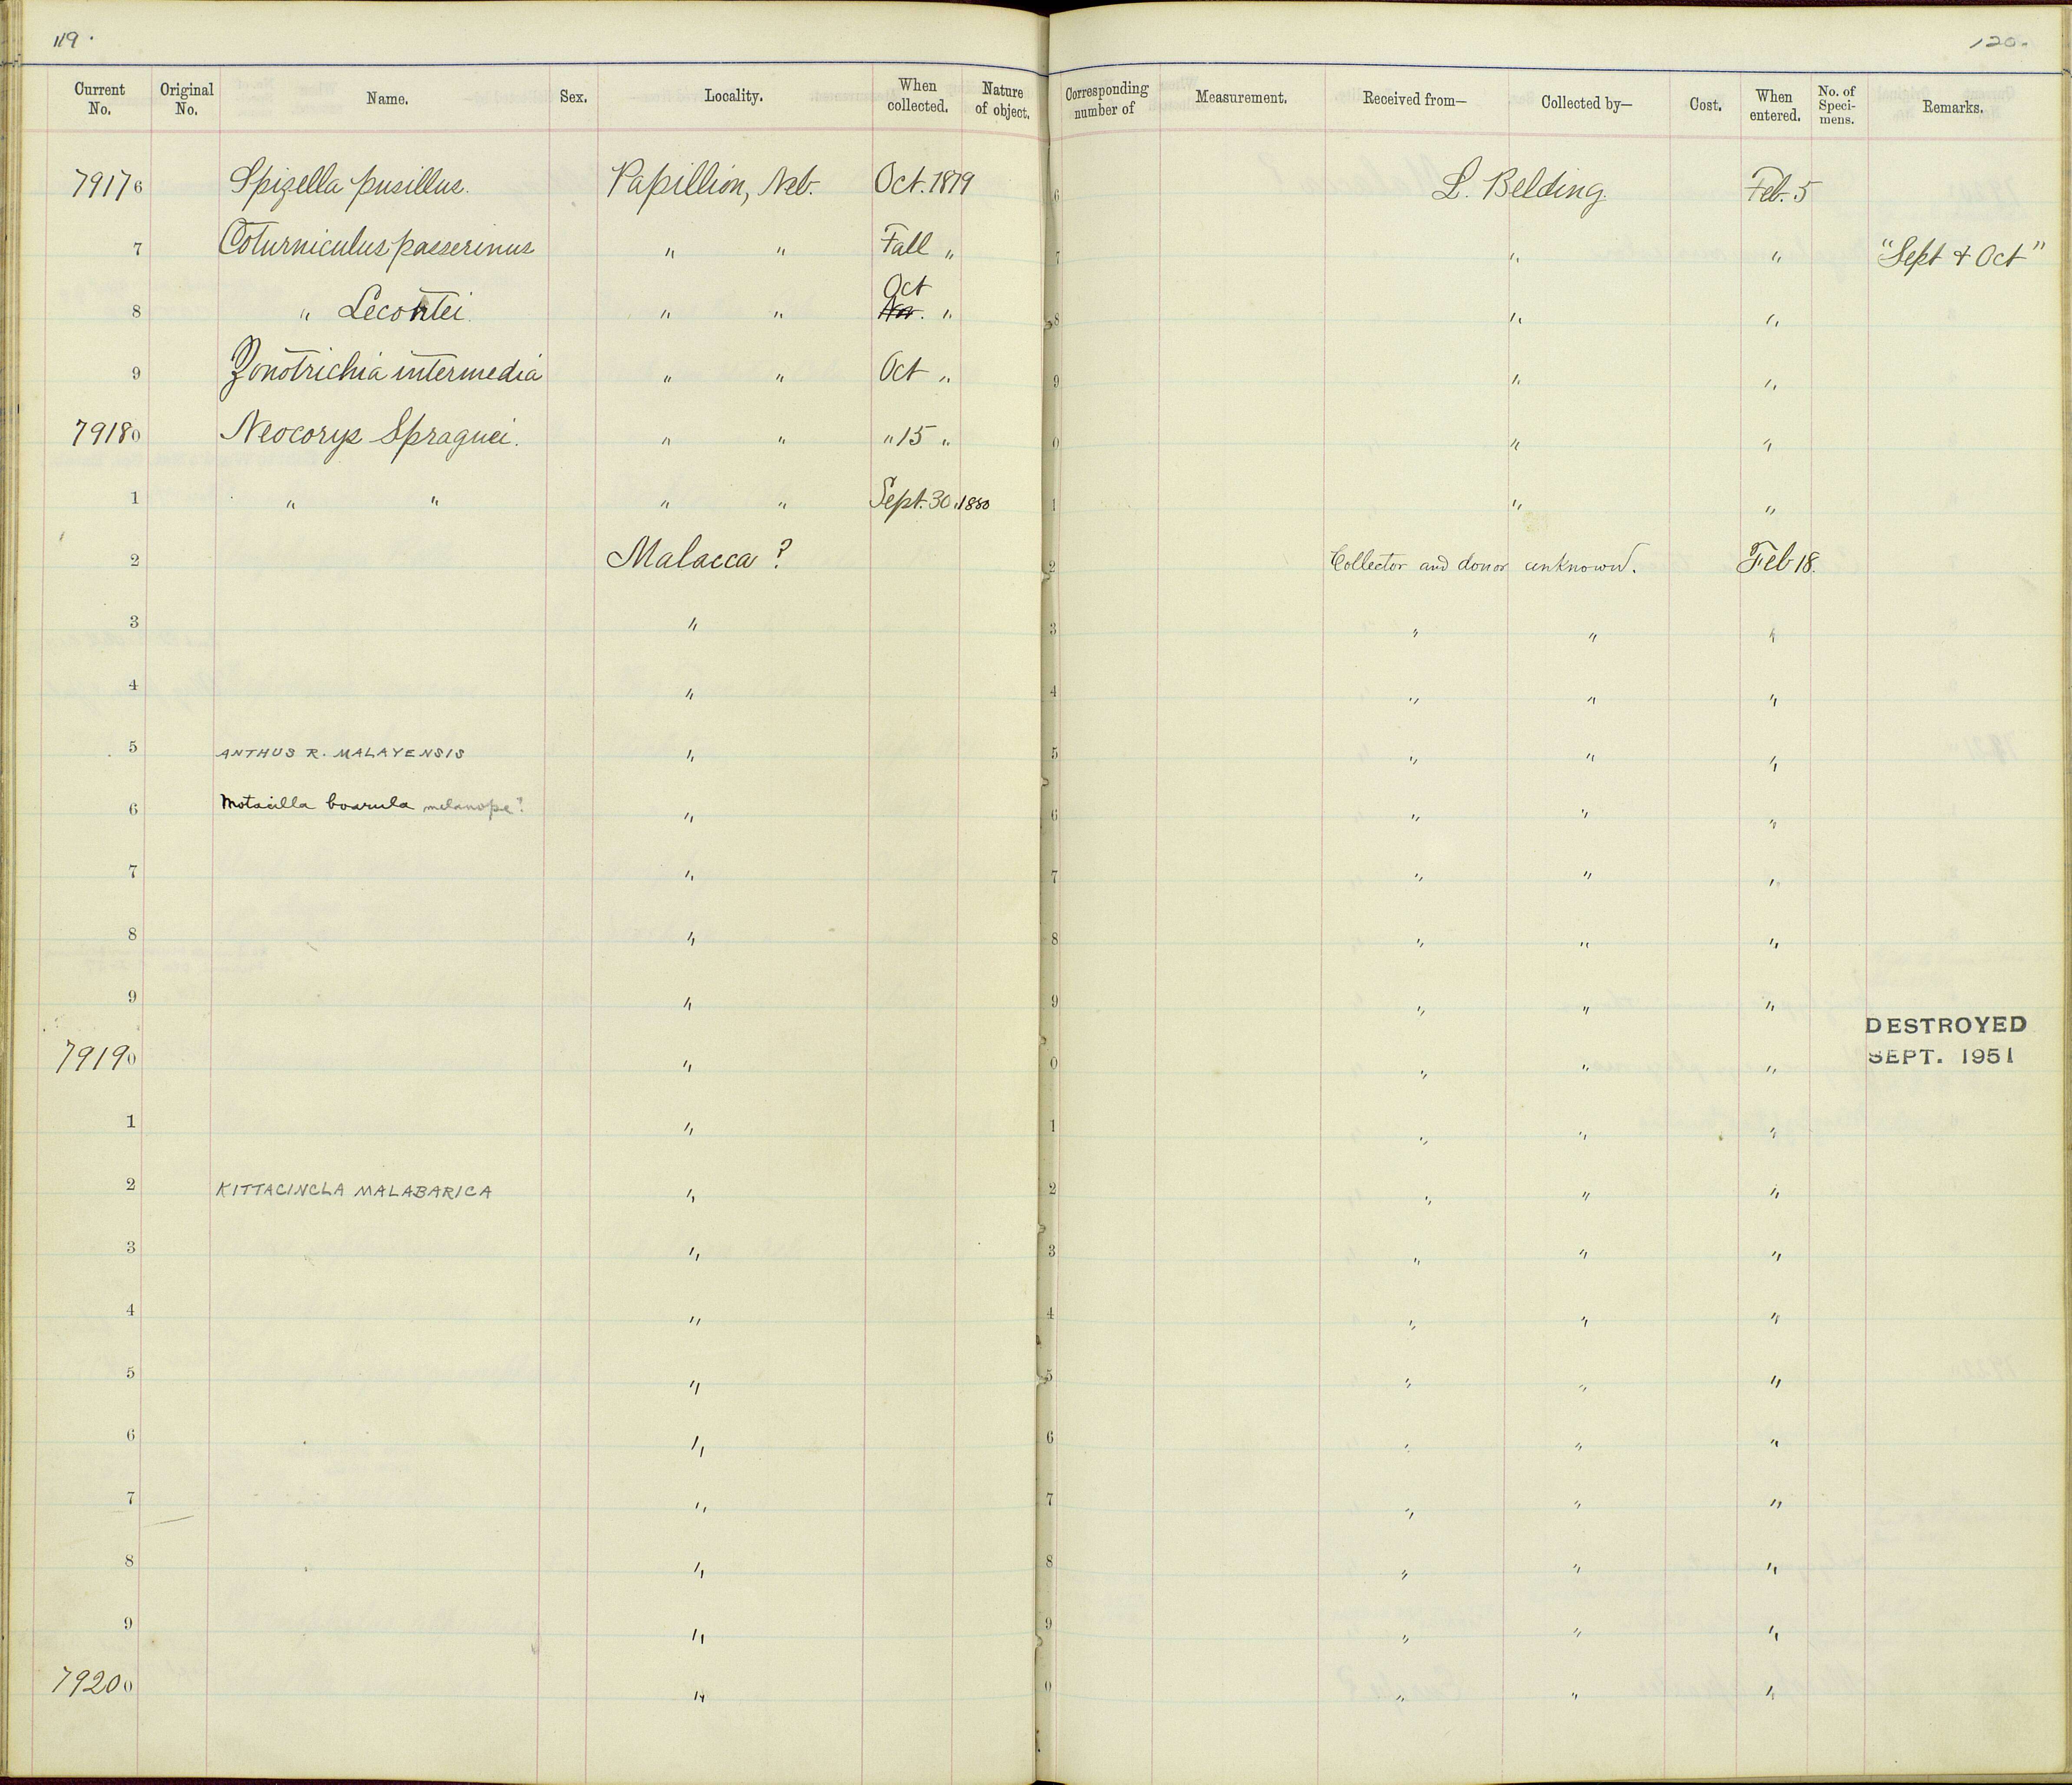 119.
120.
Current No. Original No. Name. Sex. Locality. When collected. Nature of object. Corresponding number of Measurement. Received from— Collected by— Cost. When entered. No. of Speci-mens. Remarks.
79176 Spizella pusillus. Papillion, Neb. Oct. 1879 6 L. Belding. Feb. 5
7 Coturniculus passerinus " " Fall " 7 " " "Sept & Oct"
8 " Lecontei. " " Oct Nov. " 8 " "
9 Zonotrichia intermedia " " Oct " 9 " "
79180 Neocorys Spraguei. " " " 15 " 0 " "
1 " " " " Sept. 30, 1880 1 " "
2 Malacca ? 2 Collector and donor unknown. Feb 18.
3 " 3 " " "
4 " 4 " " "
5 ANTHUS R. MALAYENSIS " 5 " " "
6 Motacilla boarula melanope? " 6 " " "
7 " 7 " " "
8 " 8 " " "
9 " 9 " " "
79190 " 0 " " " DESTROYED SEPT. 1951
1 " 1 " " "
2 KITTACINCLA MALABARICA " 2 " " "
3 " 3 " " "
4 " 4 " " "
5 " 5 " " "
6 " 6 " " "
7 " 7 " " "
8 " 8 " " "
9 " 9 " " "
79200 " 0 " " "